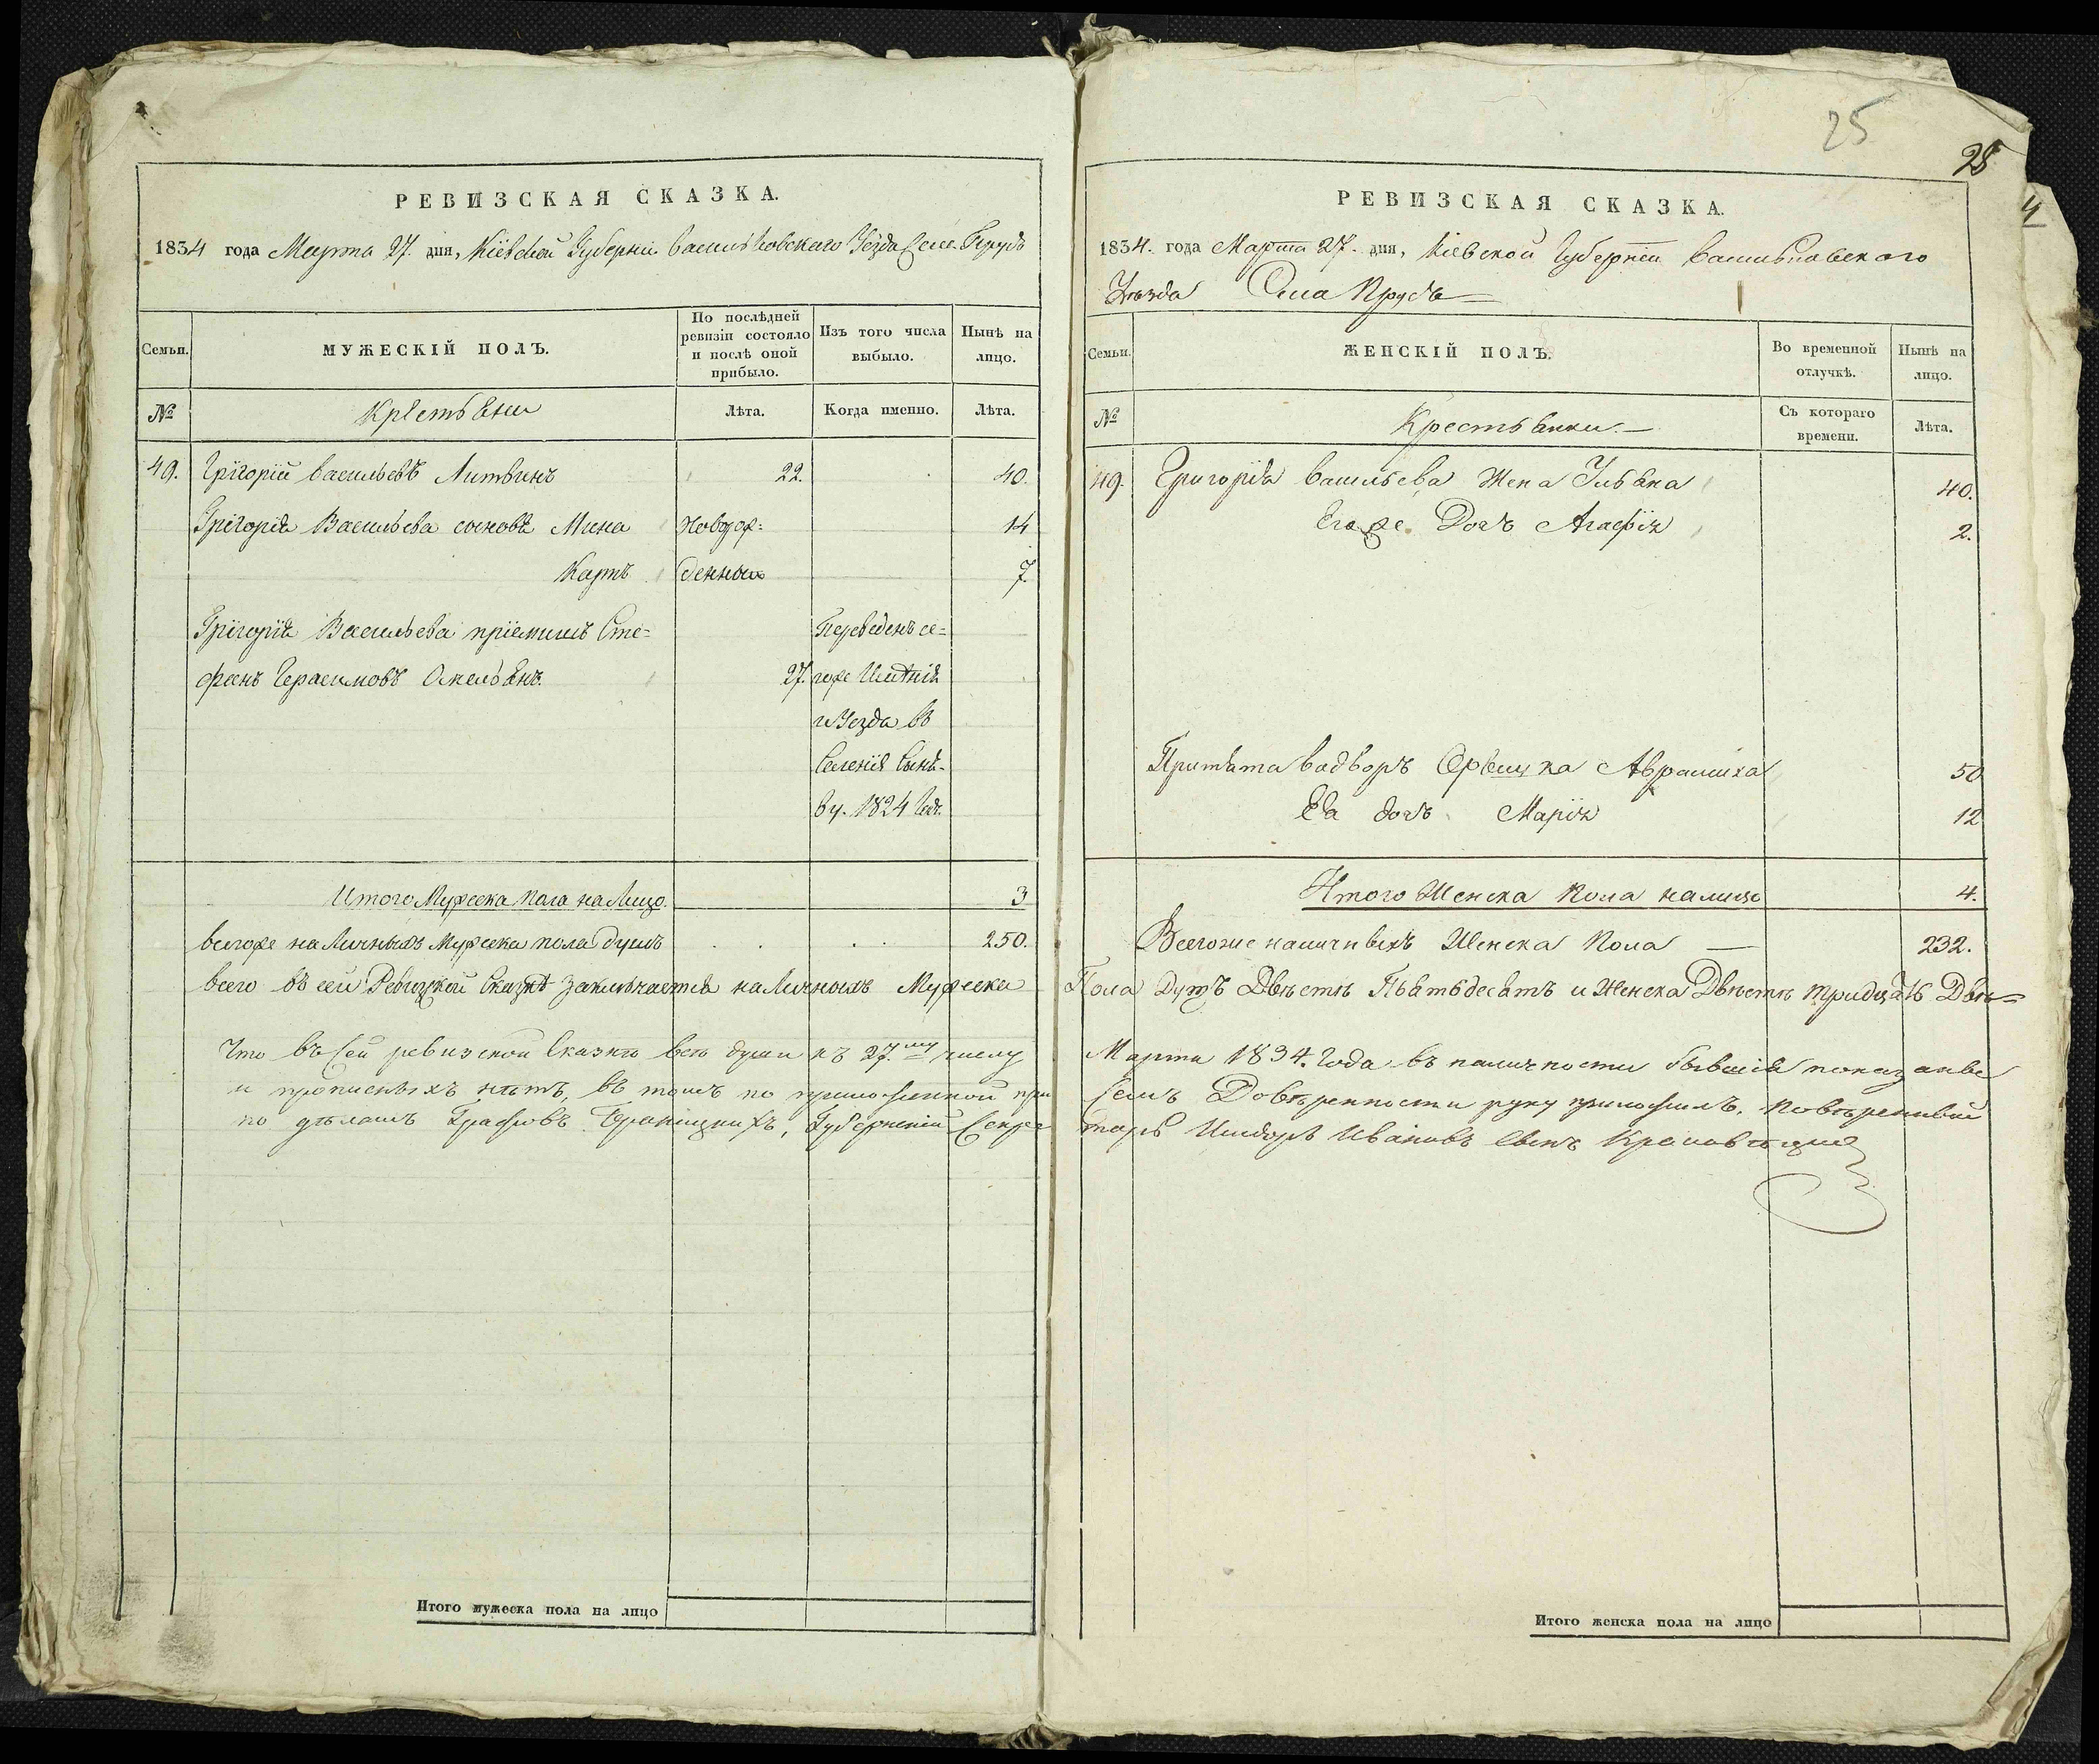 РЕВИЗСКАЯ СКАЗКА.
1834 года Марта 27. дня, Кіевской Губерніи Васильковскаго Уезда Села Прусъ
Семьи.
МУЖЕСКІЙ ПОЛЪ.
По послѣдней ревизіи состояло и послѣ оной прибыло.
Изъ того числа выбыло.
Нынѣ на лицо.
№
Крестьяни
Лѣта.
Когда именно.
Лѣта.
49. Григорій Васильевъ Литвинъ 22. 40.
Григорія Васильева сыновя Мина Новорож= 14
Карпъ денныи 7.
Григорія Васильева пріемишъ Сте= Переведенъ се=
фанъ Герасимовъ Омельянъ. 27. гоже Имѣнія
и Уезда въ
Селенія
въ. 1824 Годъ.
Итого Мужеска пола на Лицо. 3
Всегоже на Личныхъ Мужеска пола Душъ 250.
Всего въ сей Ревизкой Сказкѣ Заключается на Личныхъ Мужеска
Что въ Сей ревизской Сказкѣ всѣ души къ 27.му числу
и прописныхъ нѣтъ, въ томъ по приложенной при
по дѣламъ Графовъ Браницкихъ, Губернскій Секре
Итого мужеска пола на лицо
25
25
4
РЕВИЗСКАЯ СКАЗКА.
1834. года Марта 27. дня, Кіевской Губерніи Васильковского
Уѣзда Села Прусъ
Семьи.
ЖЕНСКІЙ ПОЛЪ.
Во временной отлучкѣ.
Нынѣ на лицо.
№
Крестьянки.
Съ котораго времени.
Лѣта.
49. Григорія Васильева Жена Ульяна 40.
Егоже Дочь Агафія 2.
Принята вадворъ Аврамиха 50
Ея дочь Марія 12
Итого Женска Пола налицо 4.
Всегоже наличныхъ Женска Пола 232.
Пола Душъ Двѣстѣ Пьятьдесятъ и Женска Двѣстѣ тридцать Двѣ
Марта 1834. Года въ наличности бывшія показанные
семъ Довѣренности руку приложилъ. Повѣренный
тарь Исидоръ Ивановъ Сынъ
Итого женска пола на лицо